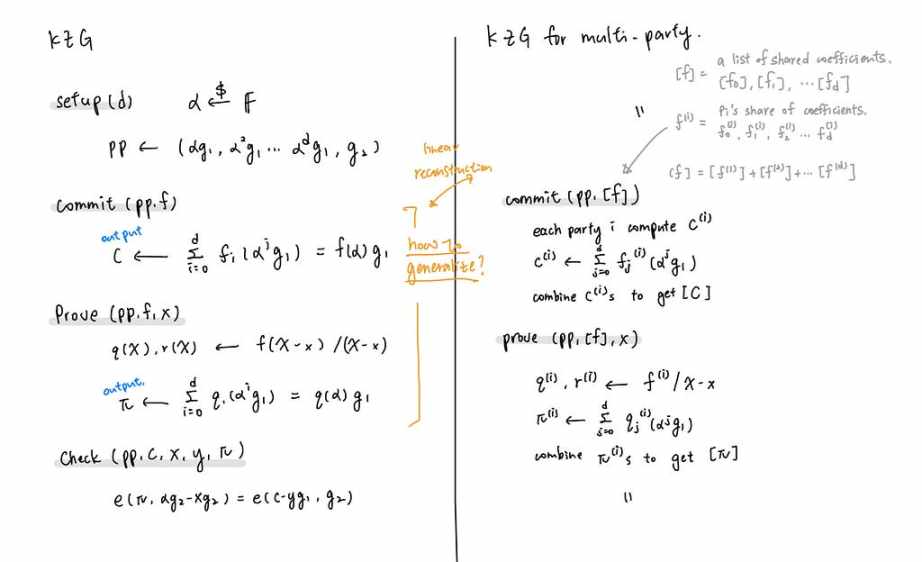 KZG
setup(d) α ←$ F
PP ← (αg₁, α²g₁ ... αᵈg₁, g₂)
commit (pp.f)
output
C ← Σᵢ₌₀ᵈ fᵢ(αⁱg₁) = f(α)g₁
Prove (pp.f,x)
q(X),r(X) ← f(X-x)/(X-x)
output.
π ← Σᵢ₌₀ᵈ qᵢ(αⁱg₁) = q(α)g₁
Check (pp, c, x, y, π)
e(π, αg₂-xg₂) = e(c-yg₁, g₂)
linear
reconstruction
how to
generalize?
KZG for multi-party.
[f] = a list of shared coefficients.
[f₀], [f₁], ... [f_d]
"
f⁽ⁱ⁾ = Pi's share of coefficients.
f₀⁽ⁱ⁾, f₁⁽ⁱ⁾, f₂⁽ⁱ⁾ ... f_d⁽ⁱ⁾
[f] = [f⁽¹⁾]+[f⁽²⁾]+... [f⁽ⁿ⁾]
commit (pp, [f])
each party i compute C⁽ⁱ⁾
C⁽ⁱ⁾ ← Σⱼ₌₀ᵈ fⱼ⁽ⁱ⁾(αʲg₁)
combine C⁽ⁱ⁾s to get [C]
prove (pp, [f], x)
q⁽ⁱ⁾, r⁽ⁱ⁾ ← f⁽ⁱ⁾/X-x
π⁽ⁱ⁾ ← Σⱼ₌₀ᵈ qⱼ⁽ⁱ⁾(αʲg₁)
combine π⁽ⁱ⁾s to get [π]
"